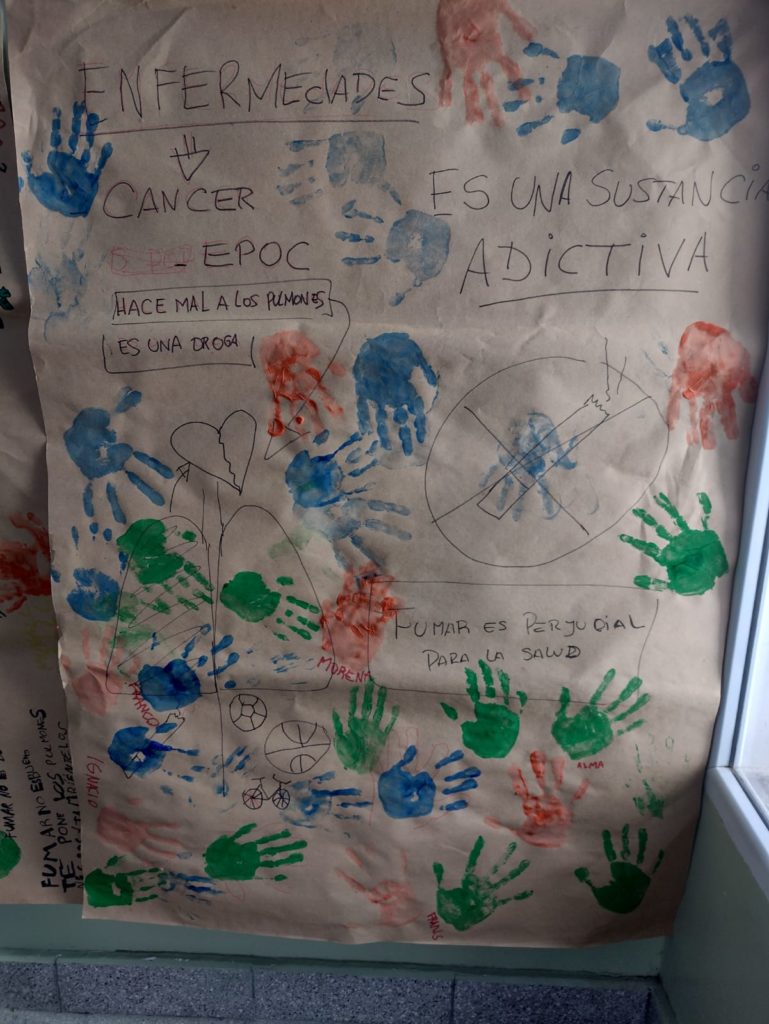 ENFERMEdADES
CANCER
- EPOC
HACE MAL A LOS PULMONES
ES UNA DROGA
ES UNA SUSTANCIA
ADICTIVA
FUMAR ES PERJUDICIAL
PARA LA SALUD
MORENA
FRANCO
IGNACIO
ALMA
FUMAR NO ES
FUMAR NO
TE PONE LOS PULMONES